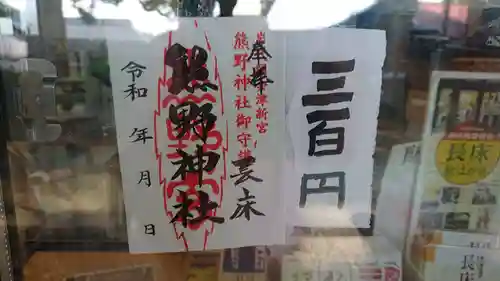 三百円
奉拝
長床
熊野神社
令和 年 月 日
熊野神社御守護
津新宮
長床